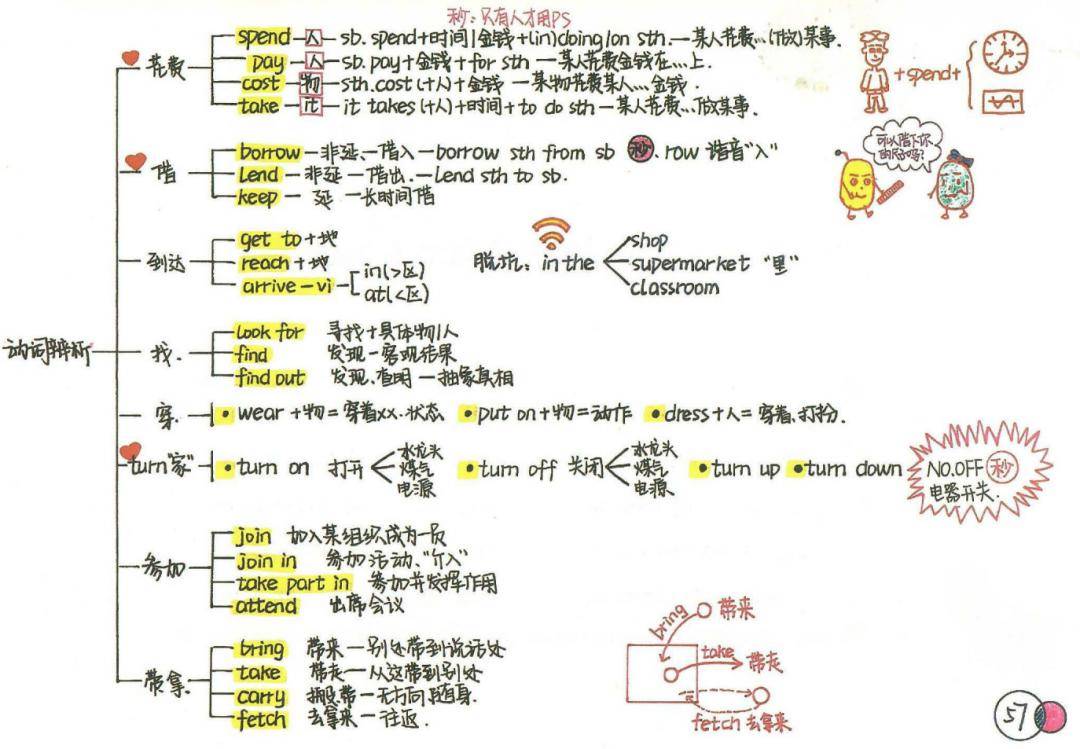 秒:只有人才用PS
动词辨析
花费
spend—人—sb. spend+时间/金钱+(in)doing/on sth.—某人花费...(做)某事.
pay—人—sb. pay+金钱+for sth—某人花费金钱在...上.
cost—物—sth. cost(+人)+金钱—某物花费某人...金钱.
take—it—it takes(+人)+时间+to do sth—某人花费...做某事.
+spend+
借
borrow—非延、—借入—borrow sth from sb 秒. row 谐音"入"
Lend—非延—借出.—Lend sth to sb.
keep—延—长时间借
可以借下你的尺吗?
到达
get to+地
reach+地
arrive—vi
in(>区)
at(<区)
脱坑: in the
shop
supermarket "里"
classroom
找.
Look for 寻找+具体物/人
find 发现—客观结果
find out 发现.查明—抽象真相
穿.
•wear+物=穿着xx.状态 •put on+物=动作 •dress+人=穿着、打扮.
turn"家"
•turn on 打开
水龙头
煤气
电源
•turn off 关闭
水龙头
煤气
电源
•turn up •turn down
NO.OFF 秒
电器开关.
参加
join 加入某组织成为一员
join in 参加活动、"介入"
take part in 参加并发挥作用
attend 出席会议
带拿.
bring 带来—别处带到说话处
take 带走—从这带到别处
carry 搬.带—无方向.随身.
fetch 去拿来—往返.
bring 带来
take 带走
fetch 去拿来
57